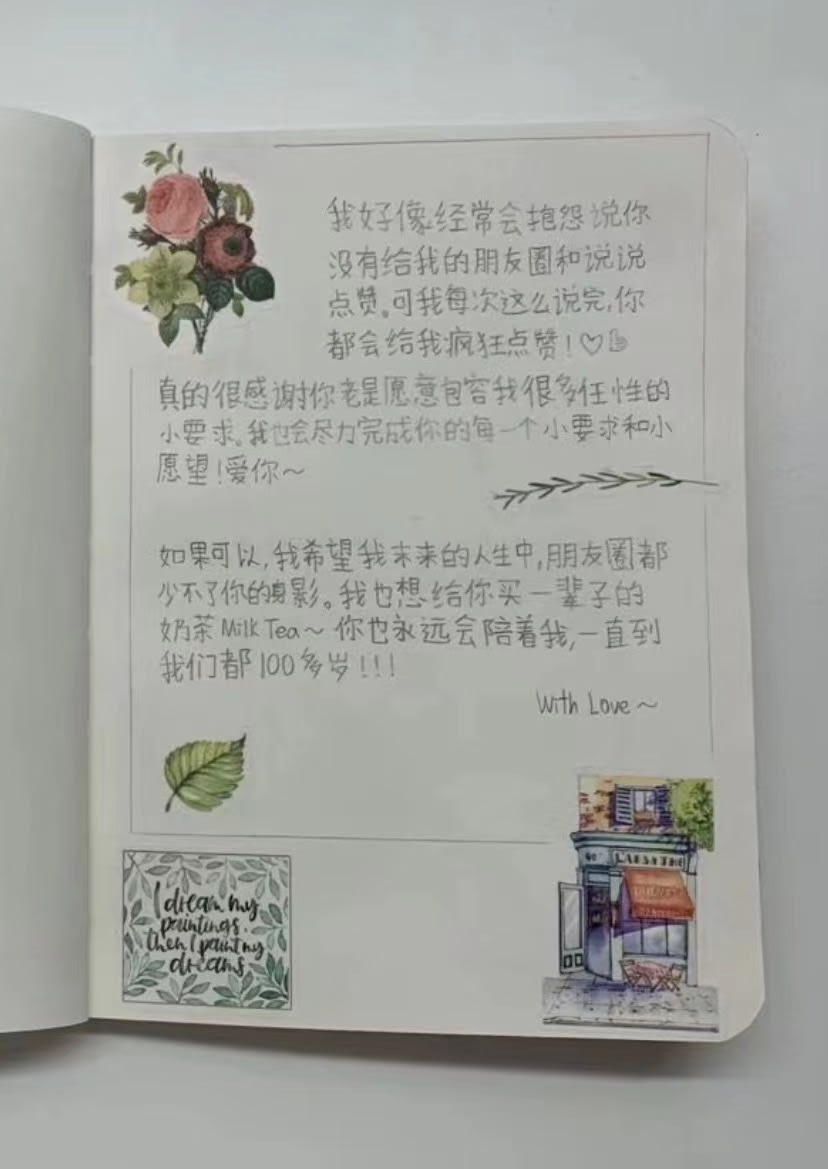 我好像经常会抱怨说你
没有给我的朋友圈和说说
点赞。可我每次这么说完,你
都会给我疯狂点赞!♡
真的很感谢你老是愿意包容我很多任性的
小要求。我也会尽力完成你的每一个小要求和小
愿望!爱你~
如果可以,我希望我未来的人生中,朋友圈都
少不了你的身影。我也想给你买一辈子的
奶茶Milk Tea~ 你也永远会陪着我,一直到
我们都100多岁!!!
With Love~
I dream my
paintings,
then I paint my
dreams